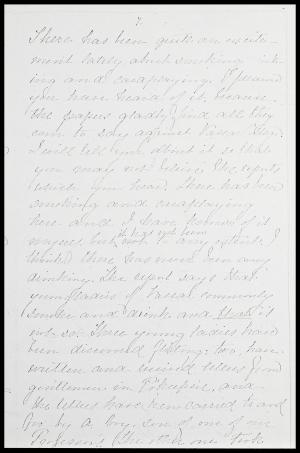 7.
There has been quite an excite-
ment lately about smoking
and card playing. I presume
you have heard of it, because
the papers gladly find all they
can to say against Vassar. Now
I will tell you about it so that
you may not believe the reports
which you hear. There has been
smoking and card playing
here and I have known of it
myself, but it has not been to any extent. I
think there has never been any
drinking. The report says that
young ladies of Vassar commonly
smoke and drink and that is
not so. Three young ladies have
been discovered flirting: two have
written and received letters from
gentlemen in Po'keepsie, and
the letters have been carried to and
fro by a boy, son of one of our
Professors (the other one took